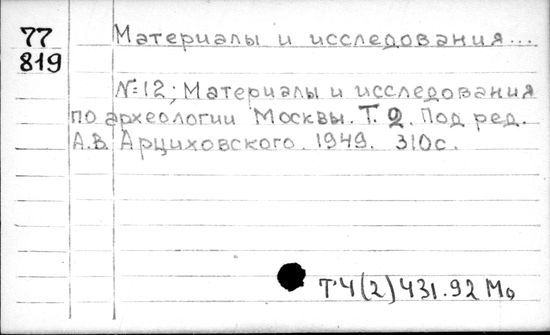 77 Материалы и исследования...
819
№12; Материалы и исследования
по археологии Москвы. Т. 2. Под ред.
А.В. Арциховского. 1949. 310с.
Т4(2)431.92 Мо